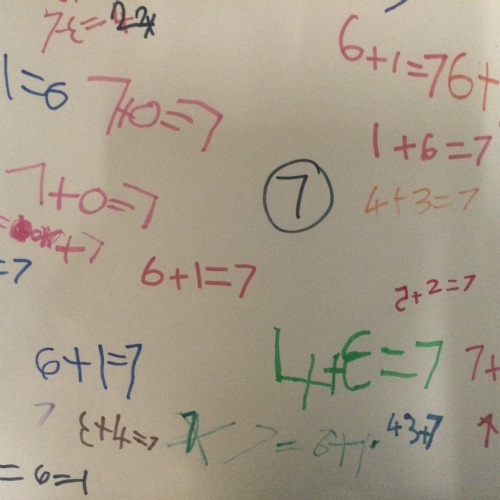 6+1=7
6+
1=6
7+0=7
1+6=7
7+0=7
7
4+3=7
+7
=7
6+1=7
5+2=7
6+1=7
4+3=7
7+
7
3+4=7
7=6+1
43+7
=6=1